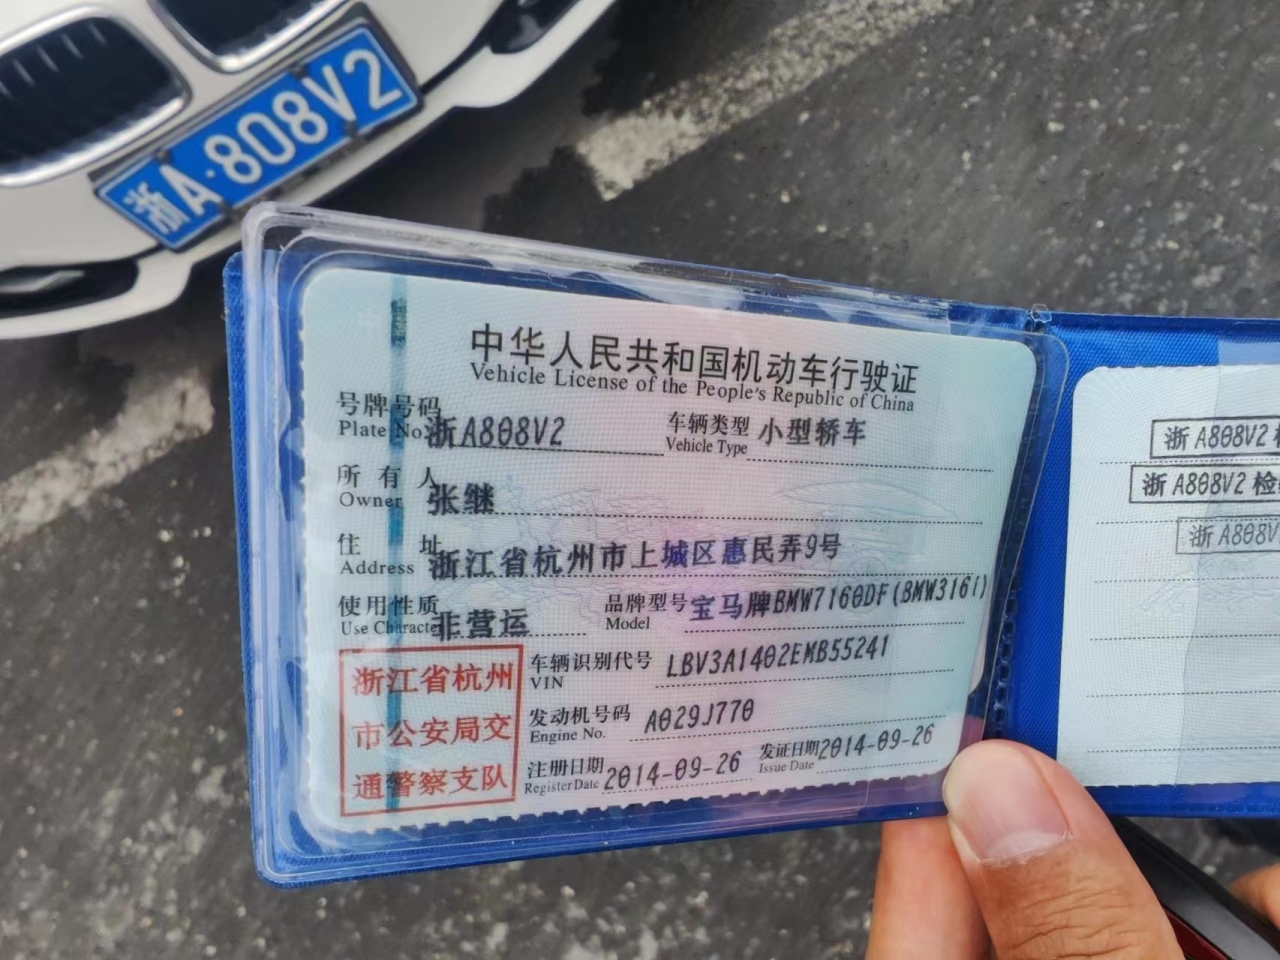 浙A·808V2
中华人民共和国机动车行驶证
Vehicle License of the People's Republic of China
号牌号码 浙A808V2 车辆类型 小型轿车
Plate No. Vehicle Type
所有人 张继
Owner
住址 浙江省杭州市上城区惠民弄9号
Address
使用性质 非营运 品牌型号 宝马牌BMW7160DF(BMW316i)
Use Character Model
浙江省杭州
市公安局交
通警察支队
车辆识别代号 LBV3A1402EMB55241
VIN
发动机号码 A029J770
Engine No.
注册日期 2014-09-26 发证日期 2014-09-26
Register Date Issue Date
浙A808V2
浙A808V2 检
浙A808V